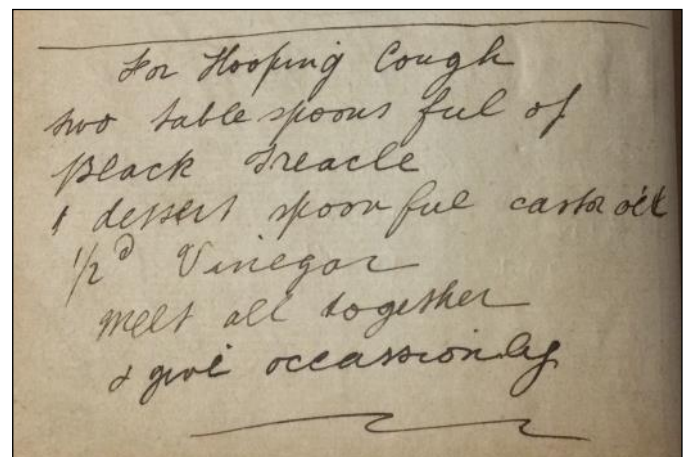 For Hooping Cough
two table spoons ful of
Black Treacle
1 dessert spoon ful castor oil
1/2ᵈ Vinegar
melt all together
& give occassionly